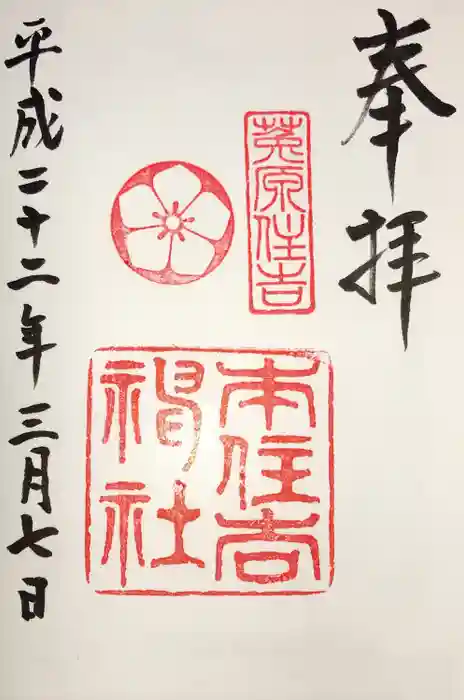 奉拝
菟原住吉
本住吉
神社
平成二十二年三月七日